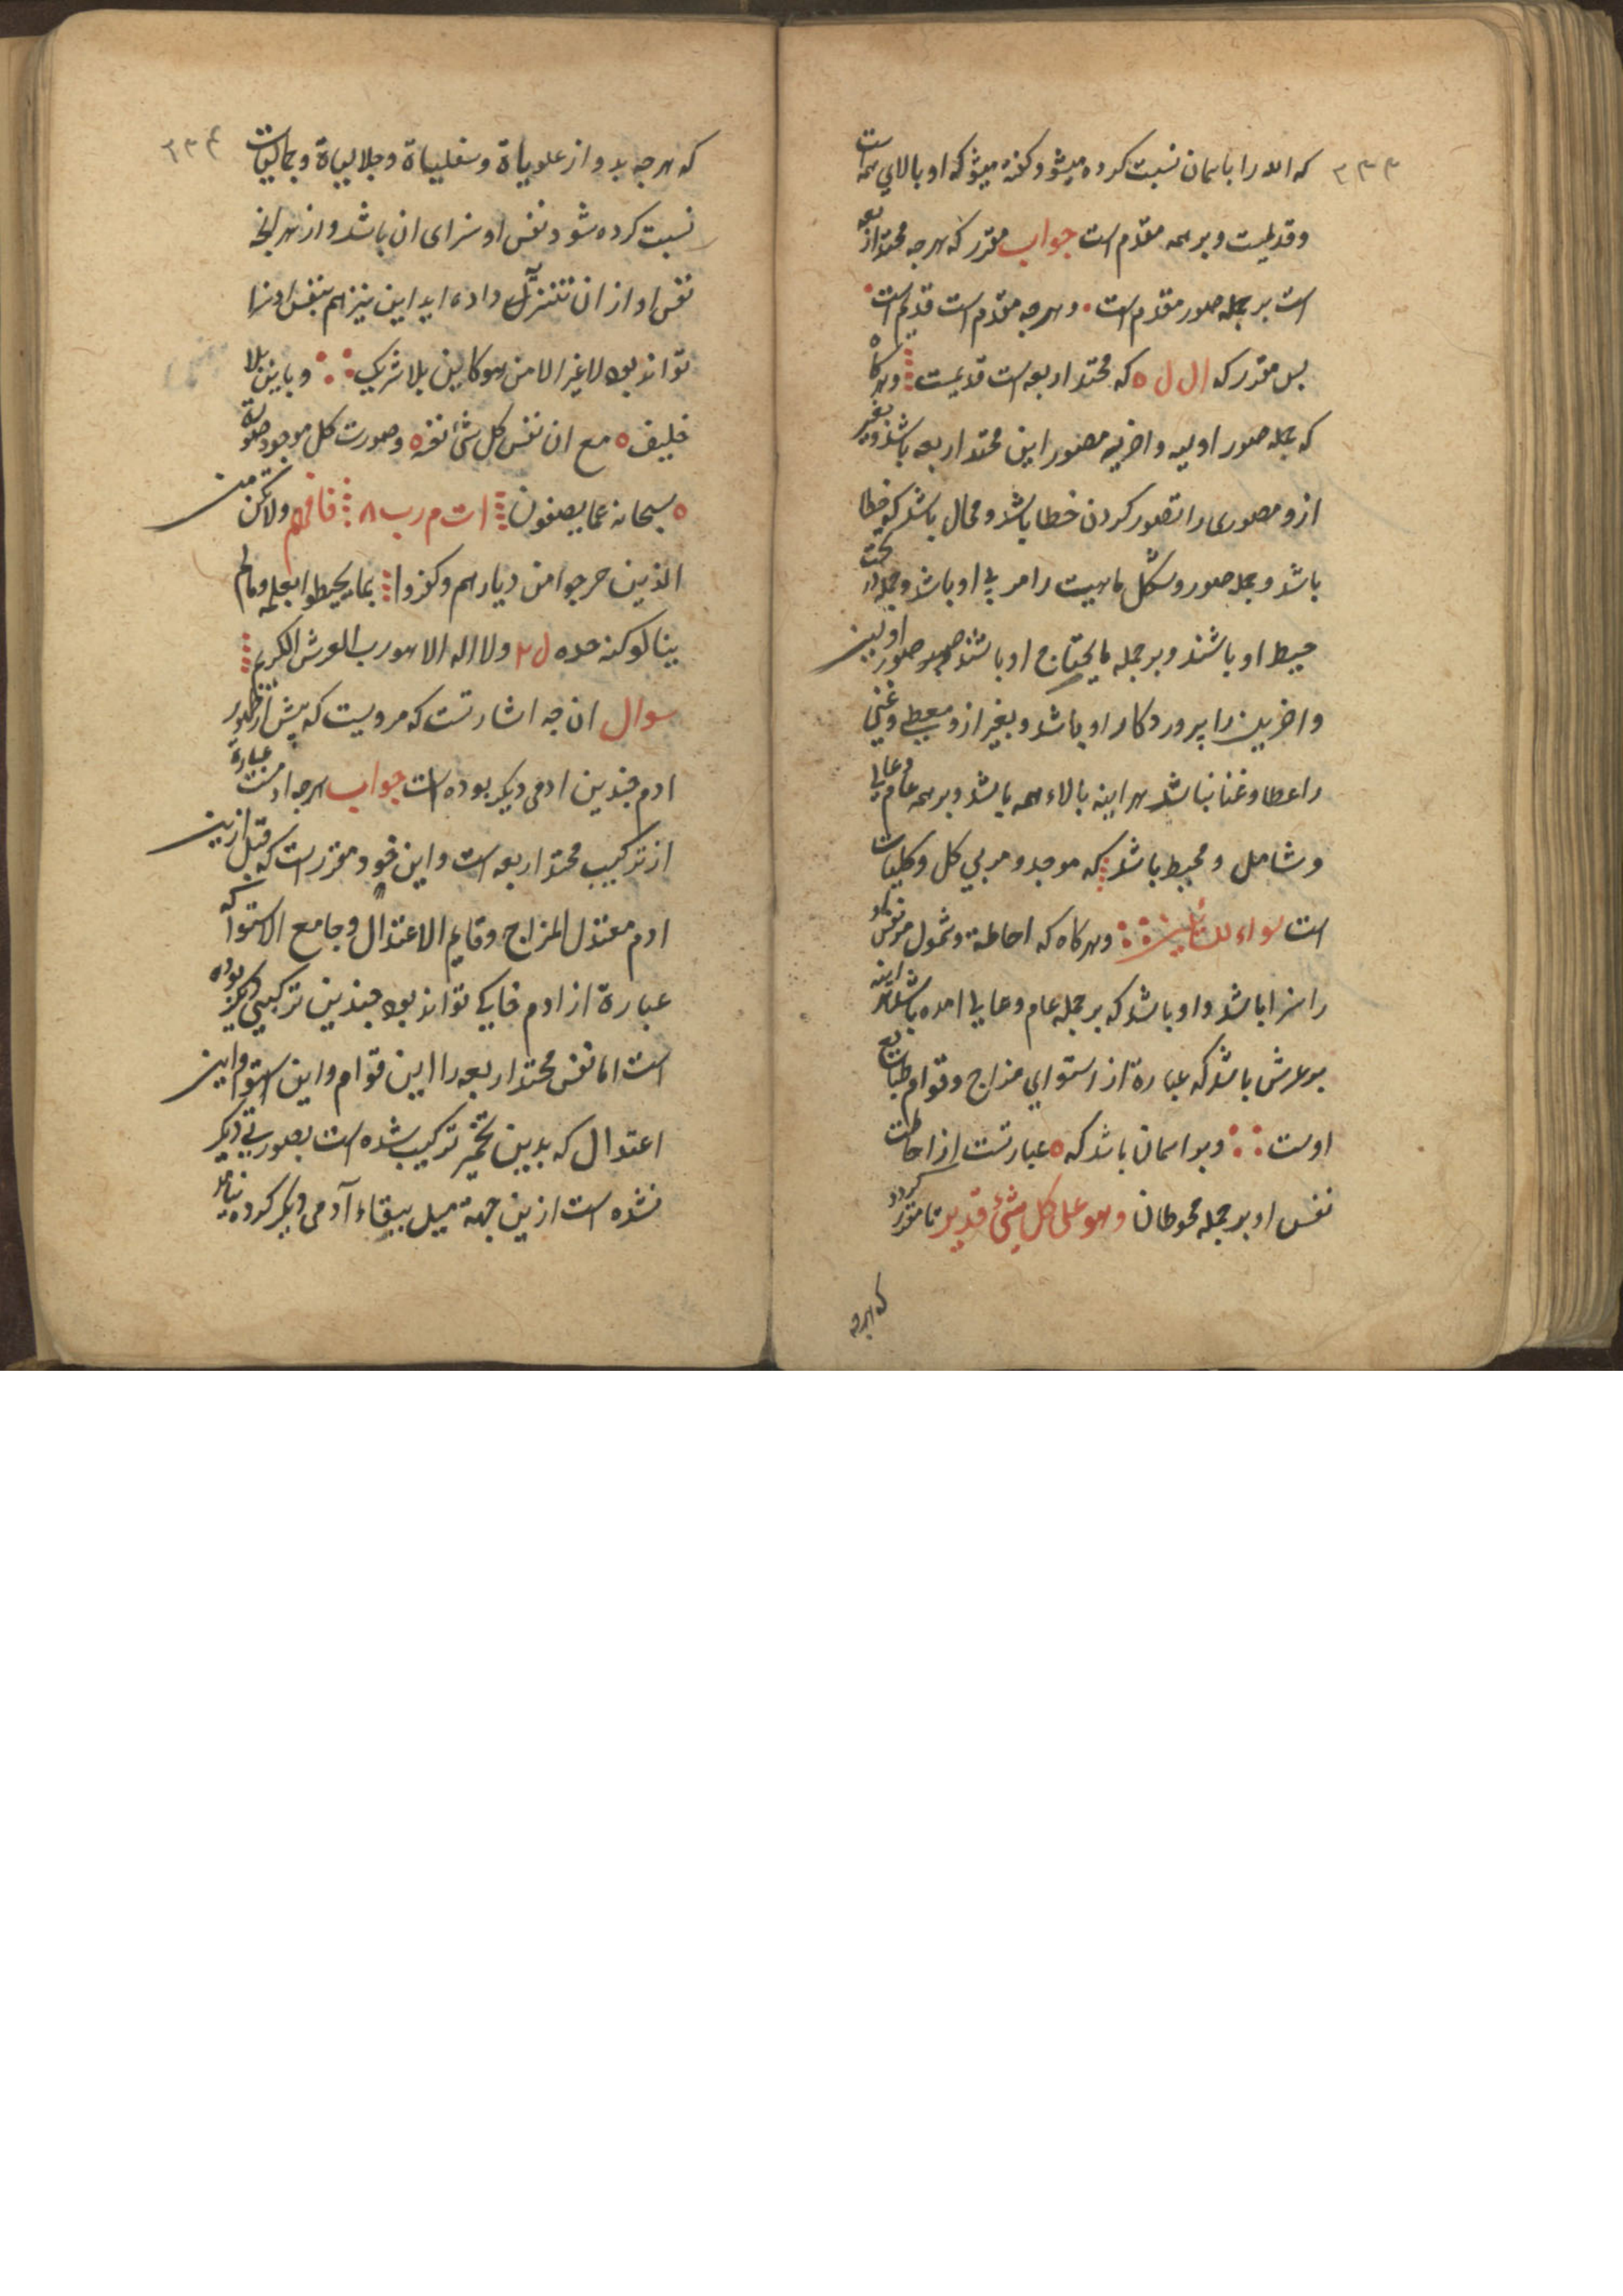 ۳۳۳
که الله را باسمان نسبت کرده میشود وکفته میشود که او بالای همه است
وقدیمست وبرهمه مقدم است جواب مقرر که هرجه محتد اربعه
است بر جمله صور مقدم است . وهرجه مقدم است قدیم است .
بس مقرر که ال ل ه که محتد اربعه است قدیمست وهرکاه
که جمله صور اولیه واخریه مصور این محتد اربعه باشند وبغیر
ازو مصوری را تصور کردن خطا باشد ومحال باشد که خطا
باشد وجمله صور وشکل ماهیت را مربی او باشد وجمله در تحت
حیط او باشند وبر جمله مایحتاج او باشند صور اولین
واخرین را پروردکار او باشد وبغیر ازو معطی وغنی
را عطا وغنا نباشد هراینه بالاء همه باشد وبرهمه عام وعالی
وشامل ومحیط باشد که موجد ومربی کل وکلیات
است سواء للسائلین وهرکاه که احاطة وشمول مر نفس او
را سزا باشد واو باشد که بر جمله عام وعالی امده باشد هراینه
بر عرش باشد که عبارة از استوای مزاج وقوام طبایع
اوست وبر اسمان باشد که ه عبارتست از احاطت
نفس او بر جمله محوطان وهو علی کل شئ قدیر تا مقرر کردد
که هرجه
۳۳۴
که هرجه بدو از علویاة وسفلیاة وجلالیاة وجمالیات
نسبت کرده شود نفس او سزای ان باشد واز هر انجه
نفس او از ان تنزل داده اید این نیز هم بنفس او سزا
تواند بود لاغیر الا من هو کاین بلا شریک وباین بلا
خلیف ه مع ان نفس کل شئ نفسه ه وصورت کل موجود صورة
ه سبحانه عما یصفون ات م رب ۸ فافهم ولا تکن من
الذین خرجوا من دیارهم وکفروا بما لم یحیطوا بعلمه وما لم
ینالو کنه حده ل ۲ ولا اله الا هو رب العرش الکریم
سوال ان جه اشارتست که مرویست که پیش از ظهور
ادم جندین ادمی دیکر بوده است جواب هرجه ادمست عبارة
از ترکیب محتد اربعه است واین خود مقرر است که قبل ازین
ادم معتدل المزاج وقایم الاعتدال وجامع الاستوا که
عبارة از ادم خاکی تواند بود جندین ترکیبی دیکر بوده
است اما نفس محتد اربعه را این قوام واین استوا واین
اعتدال که بدین تخمیر ترکیب شده است بصورتی دیکر
نشده است ازین جهة میل ببقاء آدمی دیکر کرده نیامد